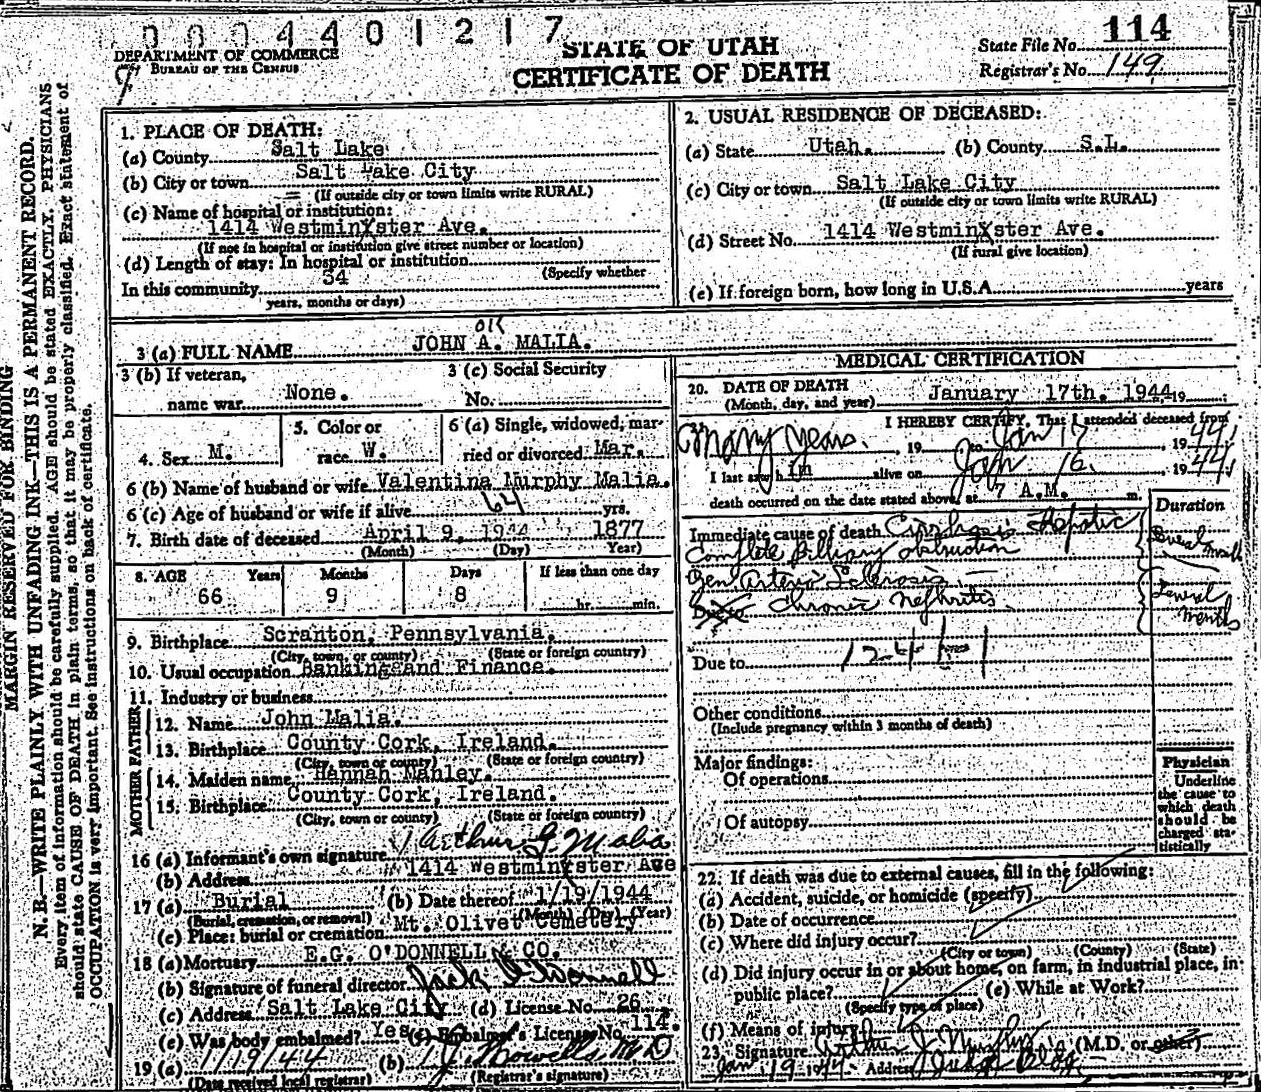 0004401217
DEPARTMENT OF COMMERCE
BUREAU OF THE CENSUS
STATE OF UTAH
CERTIFICATE OF DEATH
State File No. 114
Registrar's No. 149
MARGIN RESERVED FOR BINDING
N. B.—WRITE PLAINLY WITH UNFADING INK—THIS IS A PERMANENT RECORD.
Every item of information should be carefully supplied. AGE should be stated EXACTLY. PHYSICIANS
should state CAUSE OF DEATH in plain terms, so that it may be properly classified. Exact statement of
OCCUPATION is very important. See instructions on back of certificate.
1. PLACE OF DEATH:
(a) County Salt Lake
(b) City or town Salt Lake City
(If outside city or town limits write RURAL)
(c) Name of hospital or institution:
1414 Westminxster Ave.
(If not in hospital or institution give street number or location)
(d) Length of stay: In hospital or institution
(Specify whether
In this community 34
years, months or days)
2. USUAL RESIDENCE OF DECEASED:
(a) State Utah. (b) County S.L.
(c) City or town Salt Lake City
(If outside city or town limits write RURAL)
(d) Street No. 1414 Westminxster Ave.
(If rural give location)
(e) If foreign born, how long in U.S.A. years
OK
3 (a) FULL NAME JOHN A. MALIA.
3 (b) If veteran, name war None.
3 (c) Social Security No.
4. Sex M.
5. Color or race W.
6 (a) Single, widowed, married or divorced Mar.
6 (b) Name of husband or wife Valentina Murphy Malia.
6 (c) Age of husband or wife if alive 64 yrs.
7. Birth date of deceased April 9, 1944 1877
(Month) (Day) Year)
8. AGE Years Months Days If less than one day
66 9 8 hr. min.
9. Birthplace Scranton, Pennsylvania.
(City, town, or county) (State or foreign country)
10. Usual occupation Banking and Finance.
11. Industry or business
FATHER
12. Name John Malia.
13. Birthplace County Cork, Ireland.
(City, town or county) (State or foreign country)
MOTHER
14. Maiden name Hannah Manley.
15. Birthplace County Cork, Ireland.
(City, town or county) (State or foreign country)
16 (a) Informant's own signature Arthur G. Malia
(b) Address 1414 Westminxster Ave
17 (a) Burial (b) Date thereof 1/19/1944
(Burial, cremation, or removal) (Month) (Day) (Year)
(c) Place: burial or cremation Mt. Olivet Cemetery
18 (a) Mortuary E.G. O'DONNELL & CO.
(b) Signature of funeral director Jack O'Donnell
(c) Address Salt Lake City (d) License No. 26
(e) Was body embalmed? Yes (f) Embalmer's License No. 114.
19 (a) 1/19/44 (b) M D
(Date received local registrar) (Registrar's signature)
MEDICAL CERTIFICATION
20. DATE OF DEATH January 17th. 1944 19
(Month, day, and year)
I HEREBY CERTIFY, That I attended deceased from
Many years, 19 to Jan 17, 1944,
I last saw h im alive on Jan 16, 1944,
death occurred on the date stated above, at 7 A.M. m.
Duration
Immediate cause of death Cirrhosis Hepatic
Complete biliary obstruction
Several months
Gen Arterio Sclerosis
Chronic Nephritis
Several months
Due to 124
Other conditions
(Include pregnancy within 3 months of death)
Major findings:
Of operations
Of autopsy
Physician
Underline
the cause to
which death
should be
charged sta-
tistically
22. If death was due to external causes, fill in the following:
(a) Accident, suicide, or homicide (specify)
(b) Date of occurrence
(c) Where did injury occur?
(City or town) (County) (State)
(d) Did injury occur in or about home, on farm, in industrial place, in
public place? (e) While at Work?
(Specify type of place)
(f) Means of injury
23. Signature Arthur J. Murphy (M.D. or other)
Jan. 19. 1944. Address Judge Bldg.